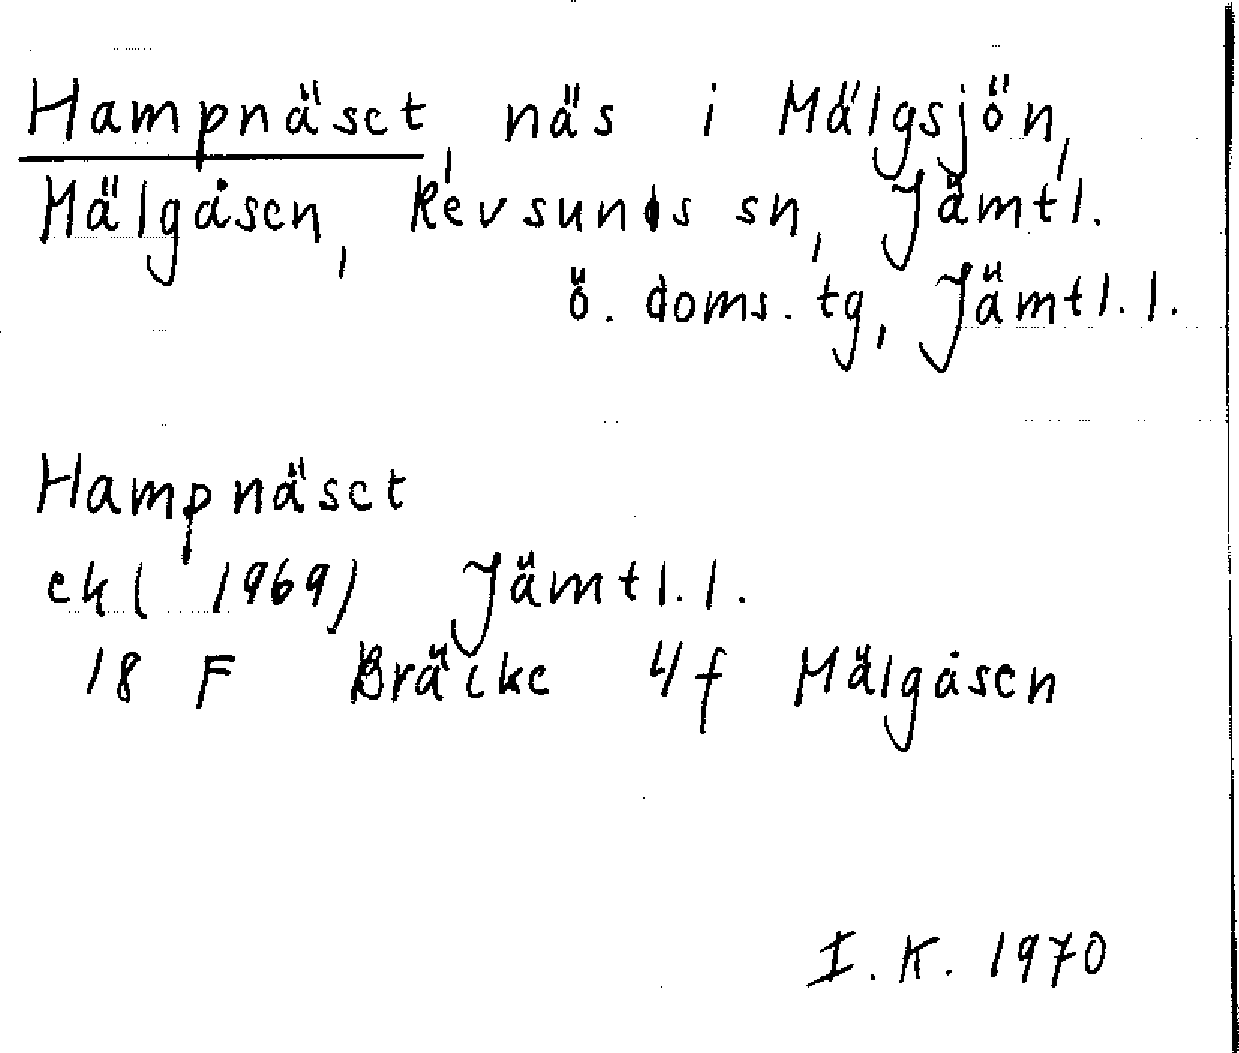 Hampnäset, näs i Mälgsjön,
Mälgåsen, Revsunds sn, Jämtl.
ö. doms. tg, Jämtl. l.
Hampnäset
ek ( 1969) Jämtl. l.
18 F Bräcke 4f Mälgåsen
I. K. 1970